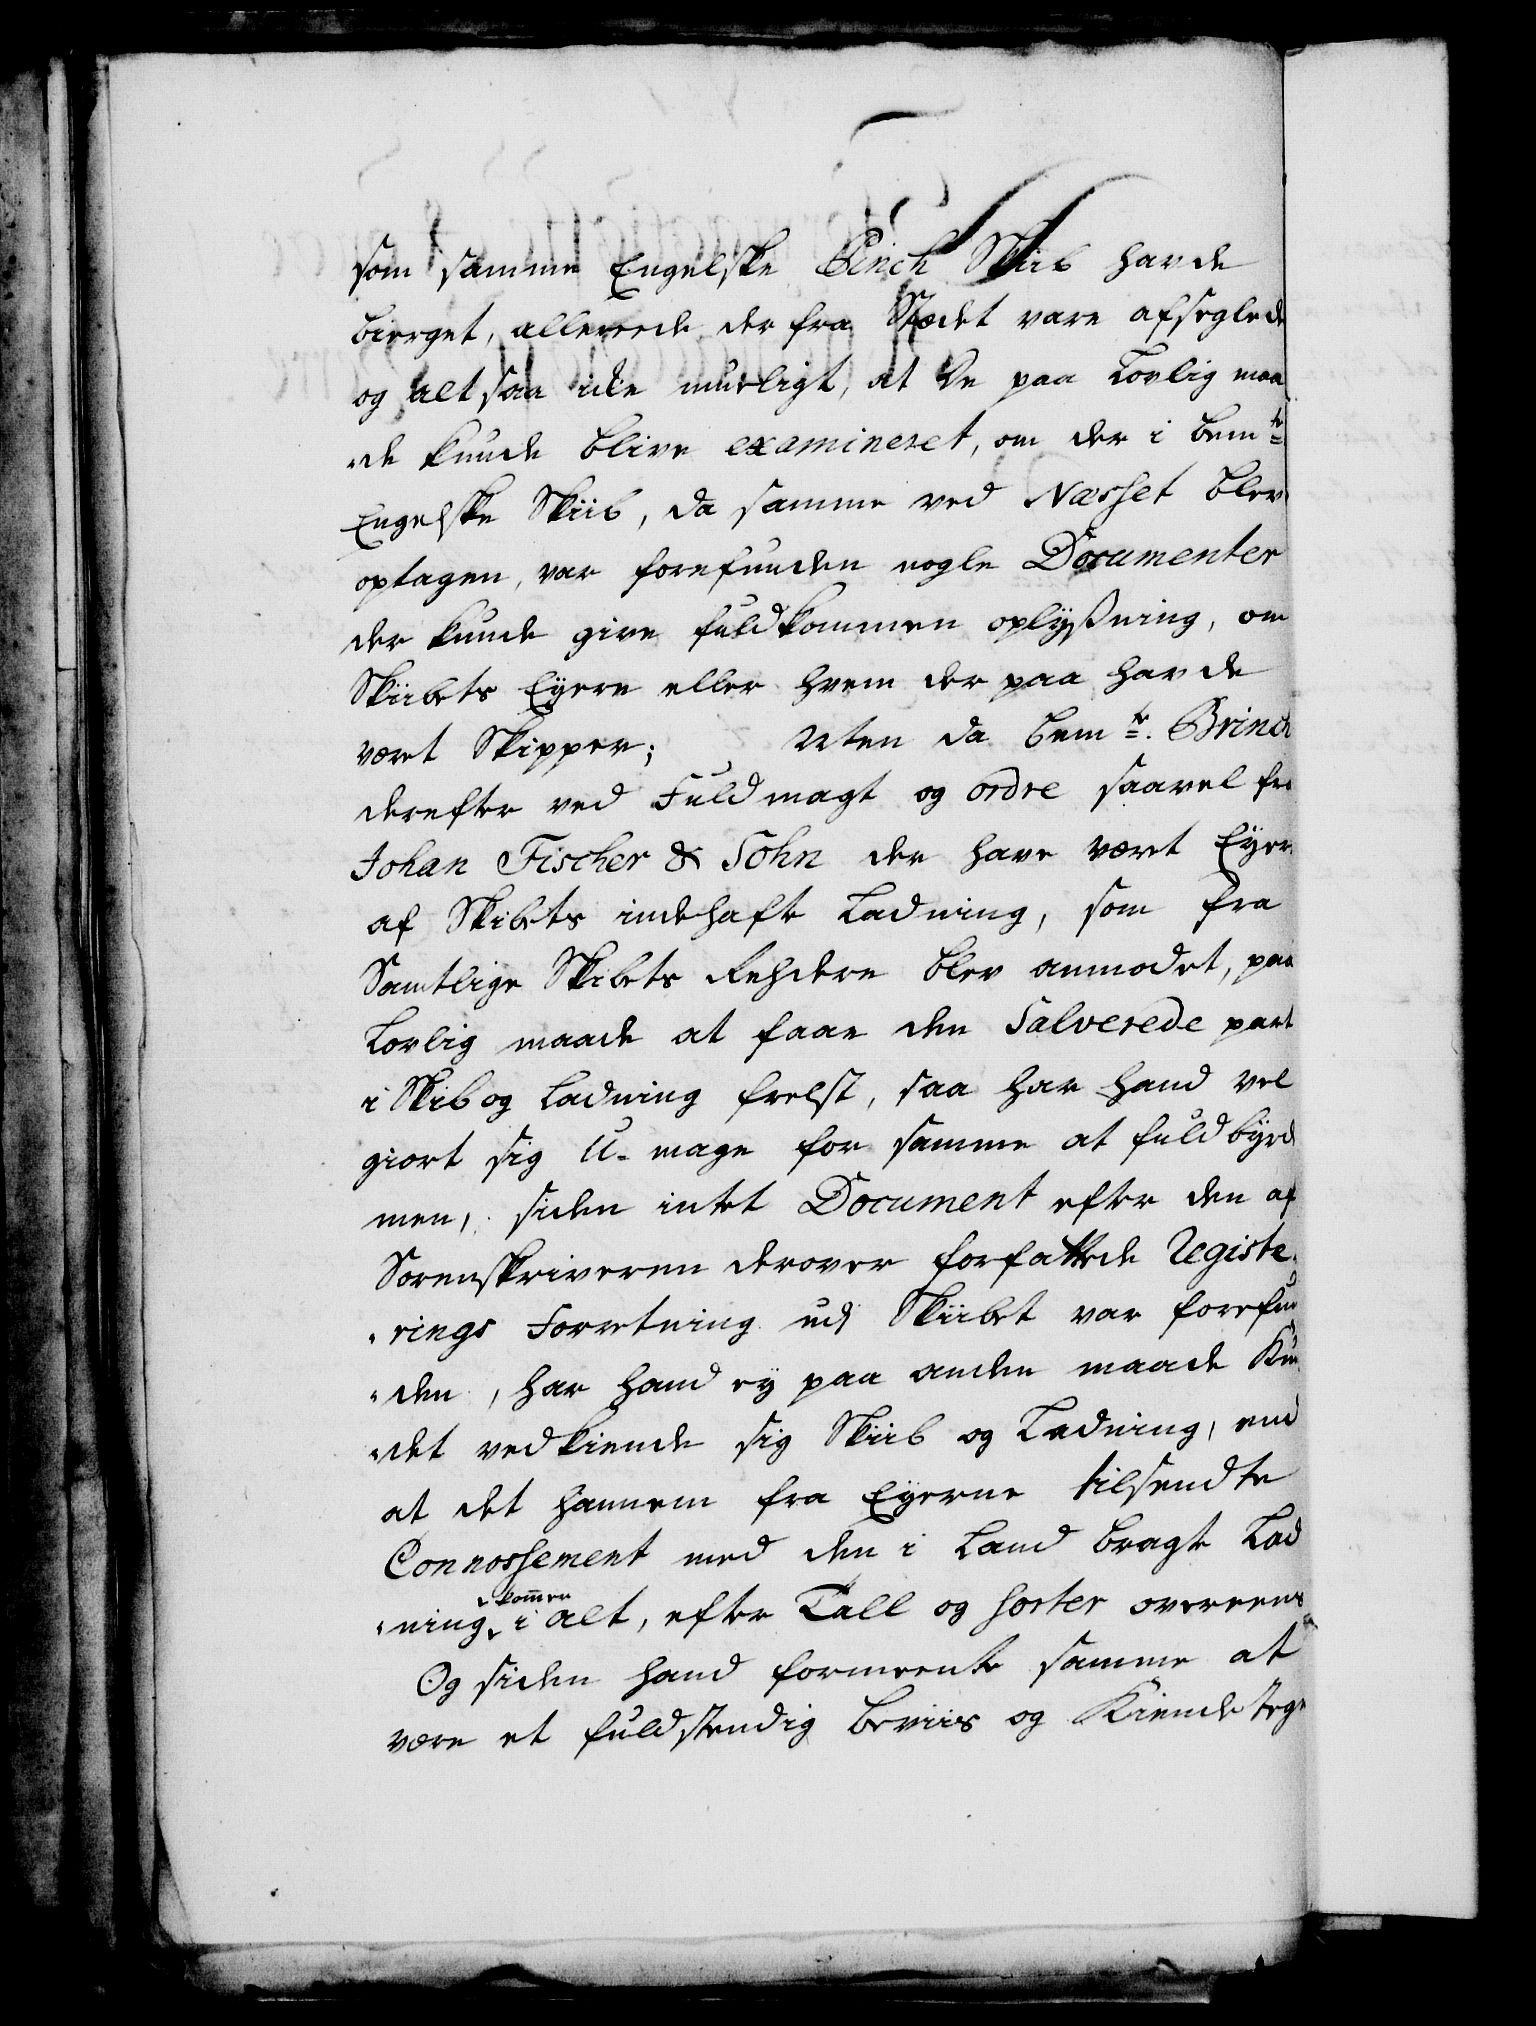 som samme Engelske Pinck Skiib havde
bierget, allereede der fra Stædet vare afseglede
og altsaa icke mueligt, at de paa Lovlig maa
-de kunde blive examineret, om der i bem:te
Engelske Skiib, da samme ved Næsset blev
optagen, var forefunden nogle Documenter
der kunde give fuldkommen oplysning, om
Skiibets Eyere eller hvem der paa havde
været Skipper; Men da bem:te Brinch
derefter ved Fuldmagt og ordre saavel fra
Johan Fischer & Sohn der have været Eyere
af Skibets indehafte Ladning, som fra
Samtlige Skibets Rehdere blev anmodet, paa
Lovlig maade at faae den Salverede part
i Skib og Ladning frelst, saa har hand vel
giort sig U-mage for samme at fuldbyrde
men, siden intet Document efter den af
Sorenskriveren derover forfattede Registe-
-rings Forretning udj Skiibet var forefun
-den, har hand ey paa anden maade kun
-det vedkiende sig Skiib og Ladning, end
at det hannem fra Eyerne tilsendte
Connossement med den i Land bragte Lad
-ning kommer i alt, efter Tall og sorter overeens
Og siden hand formeente samme at
være et fuldstendig beviis og Kiendetegn